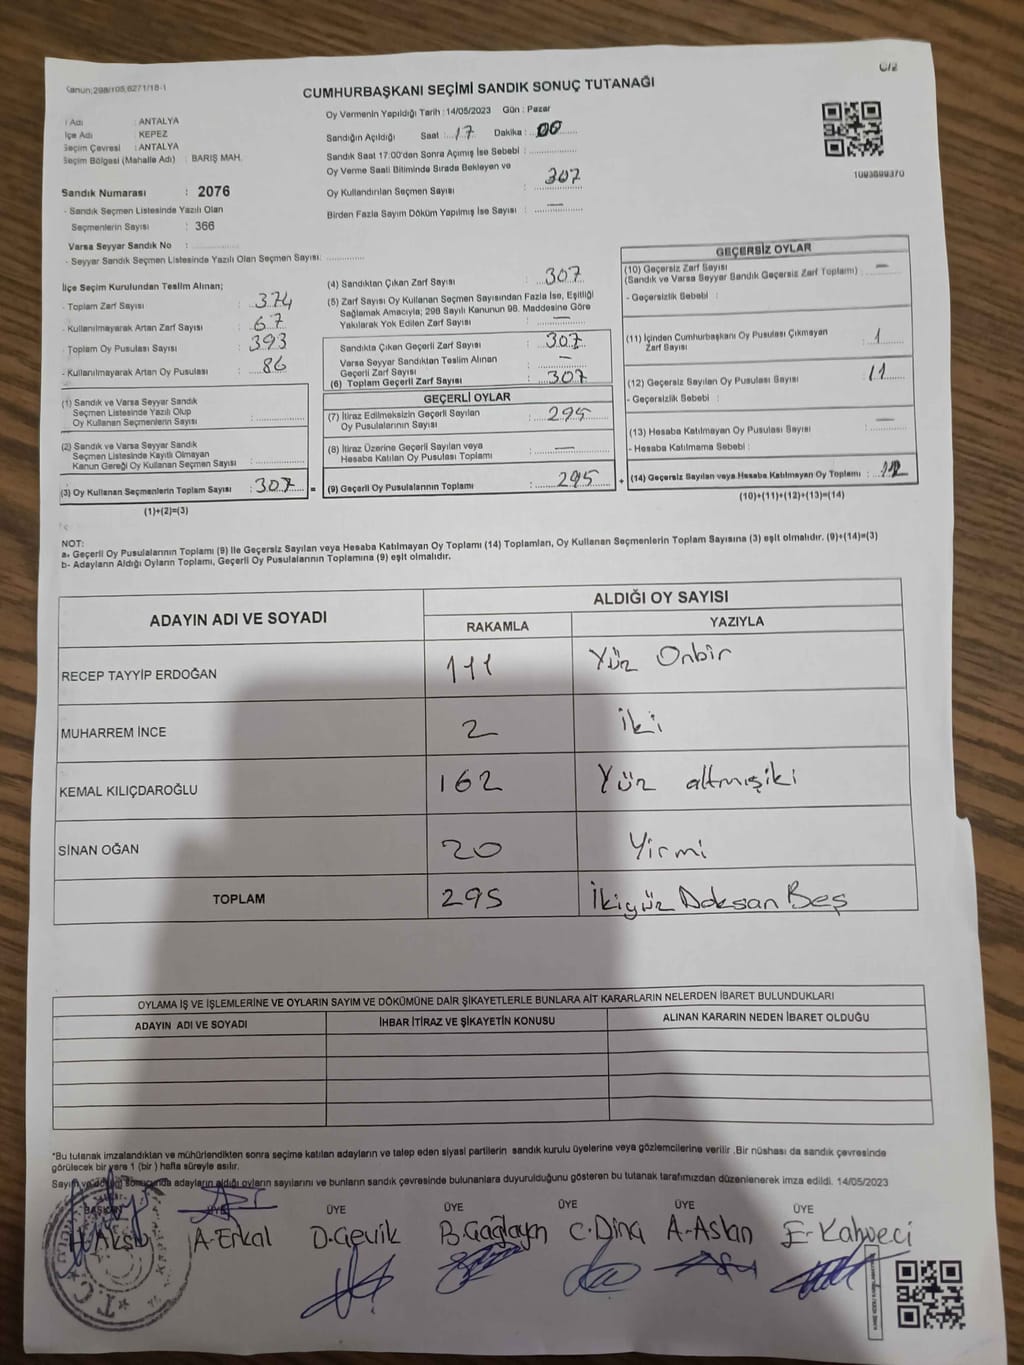 Kanun:298/105,6271/18-1
C/2
CUMHURBAŞKANI SEÇİMİ SANDIK SONUÇ TUTANAĞI
İl Adı : ANTALYA
İlçe Adı : KEPEZ
Seçim Çevresi : ANTALYA
Seçim Bölgesi (Mahalle Adı) : BARIŞ MAH.
Sandık Numarası : 2076
- Sandık Seçmen Listesinde Yazılı Olan
Seçmenlerin Sayısı : 366
Varsa Seyyar Sandık No :
- Seyyar Sandık Seçmen Listesinde Yazılı Olan Seçmen Sayısı:
Oy Vermenin Yapıldığı Tarih : 14/05/2023 Gün : Pazar
Sandığın Açıldığı Saat : 17 Dakika : 00
Sandık Saat 17:00'den Sonra Açımış İse Sebebi :
Oy Verme Saati Bitiminde Sırada Bekleyen ve
Oy Kullandırılan Seçmen Sayısı : 307
Birden Fazla Sayım Döküm Yapılmış İse Sayısı : —
1093899370
İlçe Seçim Kurulundan Teslim Alınan;
- Toplam Zarf Sayısı : 374
- Kullanılmayarak Artan Zarf Sayısı : 67
- Toplam Oy Pusulası Sayısı : 393
- Kullanılmayarak Artan Oy Pusulası : 86
(1) Sandık ve Varsa Seyyar Sandık
Seçmen Listesinde Yazılı Olup
Oy Kullanan Seçmenlerin Sayısı :
(2) Sandık ve Varsa Seyyar Sandık
Seçmen Listesinde Kayıtlı Olmayan
Kanun Gereği Oy Kullanan Seçmen Sayısı :
(3) Oy Kullanan Seçmenlerin Toplam Sayısı : 307 =
(1)+(2)=(3)
(4) Sandıktan Çıkan Zarf Sayısı : 307
(5) Zarf Sayısı Oy Kullanan Seçmen Sayısından Fazla İse, Eşitliği
Sağlamak Amacıyla; 298 Sayılı Kanunun 98. Maddesine Göre
Yakılarak Yok Edilen Zarf Sayısı : —
Sandıkta Çıkan Geçerli Zarf Sayısı : 307
Varsa Seyyar Sandıktan Teslim Alınan
Geçerli Zarf Sayısı : —
(6) Toplam Geçerli Zarf Sayısı : 307
GEÇERLİ OYLAR
(7) İtiraz Edilmeksizin Geçerli Sayılan
Oy Pusulalarının Sayısı : 295
(8) İtiraz Üzerine Geçerli Sayılan veya
Hesaba Katılan Oy Pusulası Toplamı : —
(9) Geçerli Oy Pusulalarının Toplamı : 295 +
GEÇERSİZ OYLAR
(10) Geçersiz Zarf Sayısı
(Sandık ve Varsa Seyyar Sandık Geçersiz Zarf Toplamı) : —
- Geçersizlik Sebebi :
(11) İçinden Cumhurbaşkanı Oy Pusulası Çıkmayan
Zarf Sayısı : 1
(12) Geçersiz Sayılan Oy Pusulası Sayısı : 11
- Geçersizlik Sebebi :
(13) Hesaba Katılmayan Oy Pusulası Sayısı : —
- Hesaba Katılmama Sebebi :
(14) Geçersiz Sayılan veya Hesaba Katılmayan Oy Toplamı : 12
(10)+(11)+(12)+(13)=(14)
NOT:
a- Geçerli Oy Pusulalarının Toplamı (9) İle Geçersiz Sayılan veya Hesaba Katılmayan Oy Toplamı (14) Toplamları, Oy Kullanan Seçmenlerin Toplam Sayısına (3) eşit olmalıdır. (9)+(14)=(3)
b- Adayların Aldığı Oyların Toplamı, Geçerli Oy Pusulalarının Toplamına (9) eşit olmalıdır.
ADAYIN ADI VE SOYADI
ALDIĞI OY SAYISI
RAKAMLA YAZIYLA
RECEP TAYYİP ERDOĞAN 111 Yüz Onbir
MUHARREM İNCE 2 İki
KEMAL KILIÇDAROĞLU 162 Yüz altmışiki
SİNAN OĞAN 20 Yirmi
TOPLAM 295 İkiyüz Doksan Beş
OYLAMA İŞ VE İŞLEMLERİNE VE OYLARIN SAYIM VE DÖKÜMÜNE DAİR ŞİKAYETLERLE BUNLARA AİT KARARLARIN NELERDEN İBARET BULUNDUKLARI
ADAYIN ADI VE SOYADI İHBAR İTİRAZ VE ŞİKAYETİN KONUSU ALINAN KARARIN NEDEN İBARET OLDUĞU
*Bu tutanak imzalandıktan ve mühürlendikten sonra seçime katılan adayların ve talep eden siyasi partilerin sandık kurulu üyelerine veya gözlemcilerine verilir .Bir nüshası da sandık çevresinde
görülecek bir yere 1 (bir ) hafta süreyle asılır.
Sayım ve döküm sonucunda adayların aldığı oyların sayılarını ve bunların sandık çevresinde bulunanlara duyurulduğunu gösteren bu tutanak tarafımızdan düzenlenerek imza edildi. 14/05/2023
BAŞKAN ÜYE ÜYE ÜYE ÜYE ÜYE ÜYE
A-Erkal D-Gevik B-Çağlayan C-Dinç A-Aslan E-Kahveci
T.C.